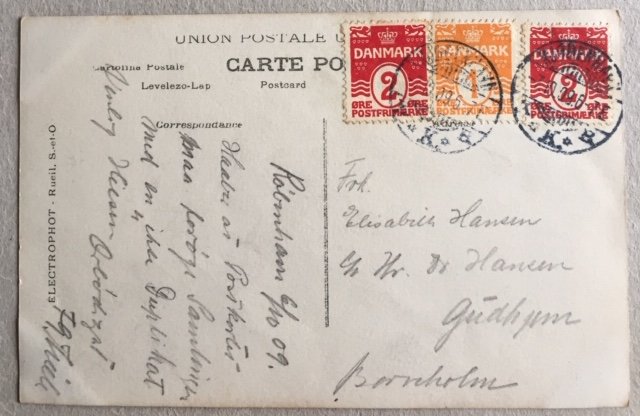 UNION POSTALE U
CARTE PO
Cartolina Postale
Levelezo-Lap
Postcard
Correspondance
ELECTROPHOT - Rueil, S.-et-O
DANMARK
2
ØRE
POSTFRIMÆRKE
DANMARK
1
ØRE
POSTFRIMÆRKE
DANMARK
2
ØRE
POSTFRIMÆRKE
K.
K.
København 6/10 09.
Haaber at Postkortet
maa forøge Samlingen
med en, ikke Duplikat
Venlig Hilsen
Frk.
Elisabeth Hansen
Hr. Dr Hansen
Gudhjem
Bornholm